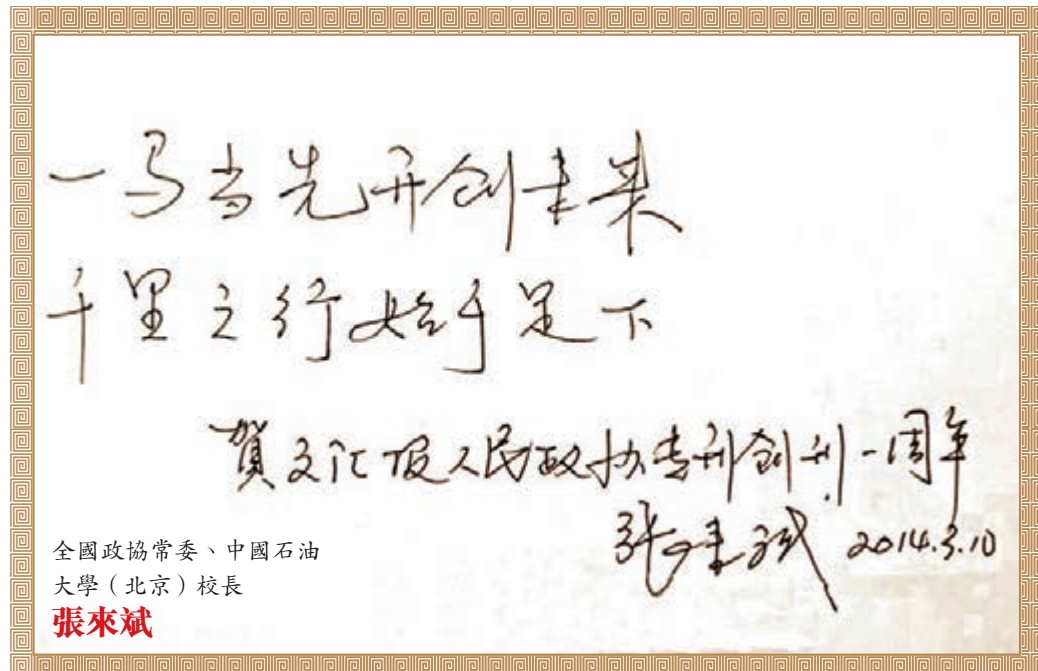 一马当先开创未来
千里之行始于足下
贺文汇报人民政协专刊创刊一周年
张来斌 2014.3.10
全國政協常委、中國石油
大學（北京）校長
張來斌